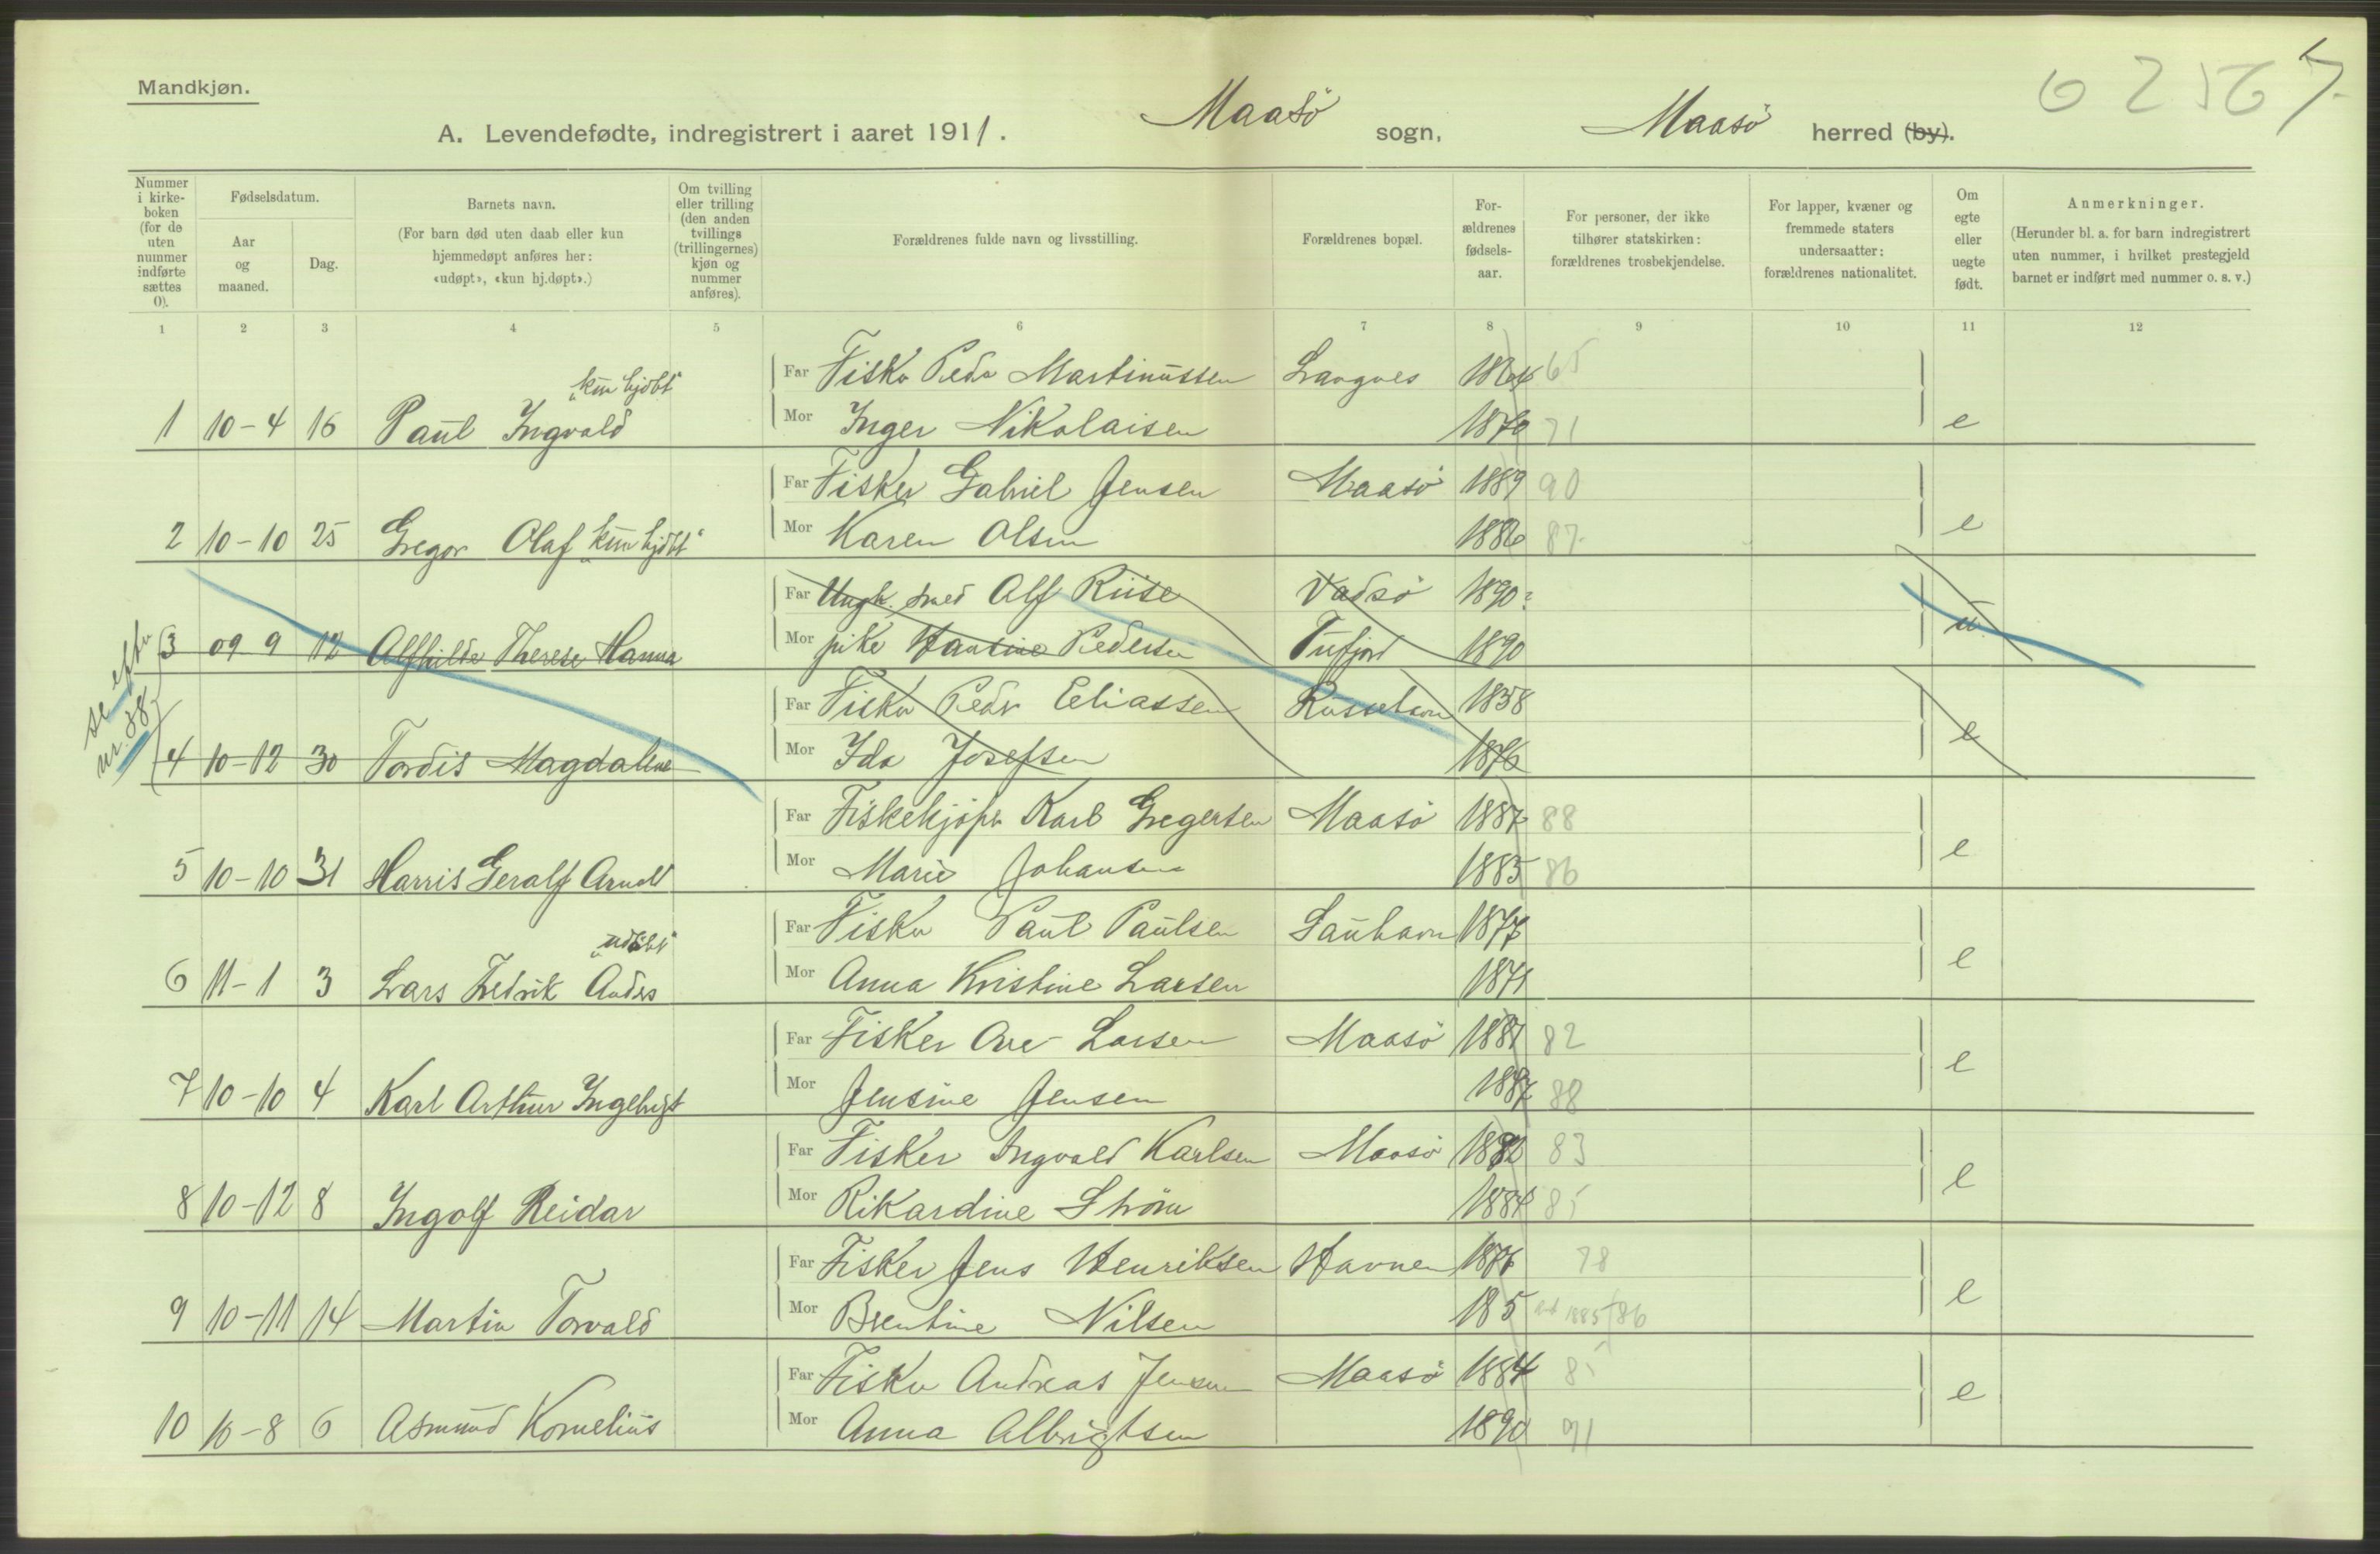 Mandkjøn.
02567
A. Levendefødte, indregistrert i aaret 1911. Maasö sogn, Maasö herred (by).
Nummer i kirkeboken (for de uten nummer indførte sættes 0).
Fødselsdatum.
Aar og maaned.
Dag.
Barnets navn.
(For barn død uten daab eller kun hjemmedøpt anføres her: «udøpt», «kun hj.døpt».)
Om tvilling eller trilling (den anden tvillings (trillingernes) kjøn og nummer anføres).
Forældrenes fulde navn og livsstilling.
Forældrenes bopæl.
Forældrenes fødselsaar.
For personer, der ikke tilhører statskirken: forældrenes trosbekjendelse.
For lapper, kvæner og fremmede staters undersaatter: forældrenes nationalitet.
Om egte eller uegte født.
Anmerkninger.
(Herunder bl. a. for barn indregistrert uten nummer, i hvilket prestegjeld barnet er indført med nummer o. s. v.)
1 2 3 4 5 6 7 8 9 10 11 12
Far Fisker Peder Martinussen Langnes 1864 65
"kun hjdbt"
1 10-4 16 Paul Ingvald Mor Inger Nikolaisen 1870 71 e
Far Fisker Gabriel Jensen Maasö 1889 90
2 10-10 25 Gregor Olaf "kun hjdbt" Mor Karen Olsen 1886 87 e
Far Ungk. smed Alf Riise Vadsö 1890?
3 09 9 12 Alfhilde Therese Hanna Mor pike Hansine Pedersen Tufjord 1890 u
se efter nr. 38
Far Fisker Peder Eliassen Russehavn 1858
4 10-12 30 Tordis Magdalene Mor Ida Josefsen 1876 e
Far Fiskekjöper Karl Gregersen Maasö 1887 88
5 10-10 31 Harris Geralf Arnolt Mor Marie Johansen 1885 86 e
Far Fisker Paul Paulsen Sauhavn 1877
"udöbt"
6 11-1 3 Lars Fredrik Anders Mor Anna Kristine Larsen 1871 e
Far Fisker Are Larsen Maasö 1881 82
7 10-10 4 Karl Arthur Ingebrigt Mor Jensine Jensen 1887 88 e
Far Fisker Ingvald Karlsen Maasö 1882 83
8 10-12 8 Ingolf Reidar Mor Rikardine Ström 1884 85 e
Far Fisker Jens Henriksen Havnen 1877 78
9 10-11 14 Martin Torvald Mor Brentine Nilsen 185 1885/86 e
Far Fisker Andreas Jensen Maasö 1884 85
10 10-8 6 Asmund Kornelius Mor Anna Albrigtsen 1890 91 e